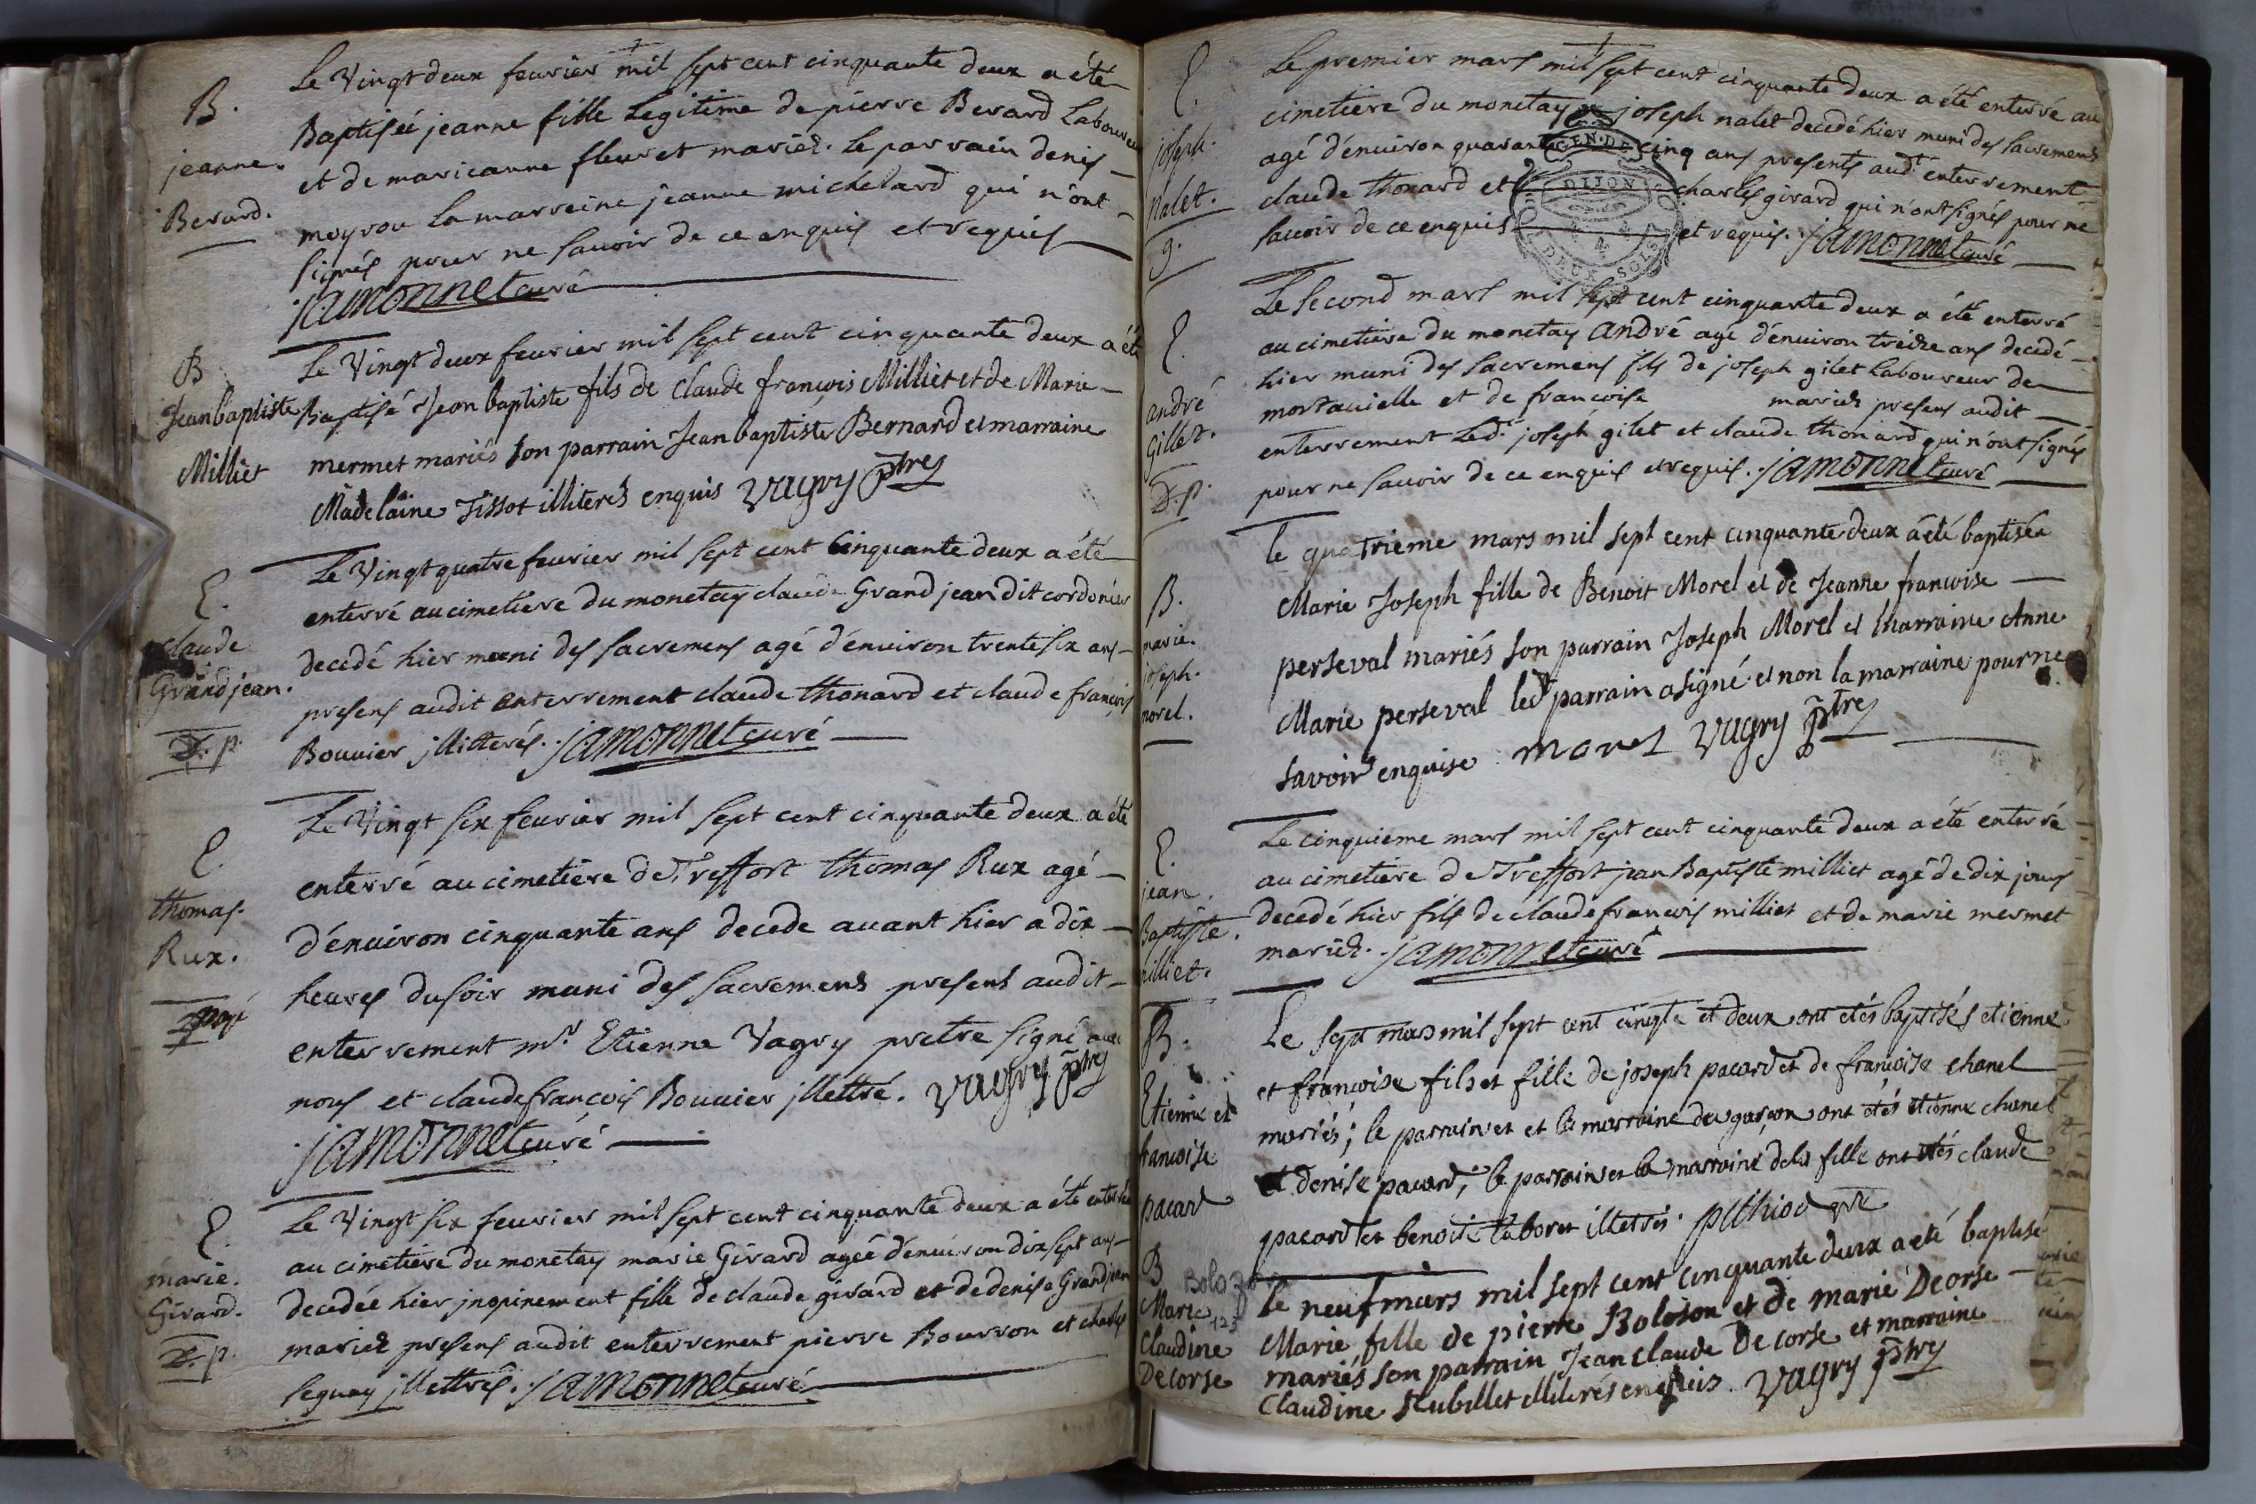 B.
jeanne.
Berard.
Le Vingt deux feurier mil sept cent cinquante deux a été
Baptisée jeanne fille legitime de pierre Berard Laboureur
et de marieanne fleuret mariez. le parrain denis
moyrou la marreine jeanne michelard qui n'ont
signés pour ne sauoir de ce enquis et requis
jamonnet curé
B
Jean baptiste
Milliet
Le Vingt deux feurier mil sept cent cinquante deux a été
Baptisé Jean baptiste fils de claude françois Milliet et de Marie
mermet mariés son parrain Jean baptiste Bernard et marraine
Madelaine Tissot illiterés enquis Vagry ptre
E.
claude
Grandjean.
D. p.
Le Vingt quatre feurier mil sept cent Cinquante deux a été
enterré au cimetiere du monetay claude Grand jean dit cordonier
decedé hier muni des sacremens agé d'enuiron trente six ans
presens audit enterrement claude thonard et claude françois
Bouuier jllitterés. jamonnet curé
E.
thomas.
Rux.
payé
Le Vingt six feurier mil sept cent cinquante deux a été
enterré au cimetière de Treffort thomas Rux agé
d'enuiron cinquante ans decede auant hier a dix
heures du soir muni des sacremens presens audit
enterrement mr. Etienne Vagry pretre signé auec
nous et claude françois Bouuier jllettré. Vagry ptre
jamonnet curé
E.
marie.
Girard.
D. p.
Le Vingt six feurier mil sept cent cinquante deux a été enterrée
au cimetiere du monetay marie Girard agée d'enuiron dix sept ans
decedée hier jnopinement fille de claude girard et de denise Grandjean
mariez presens audit enterrement pierre Bourron et charles
seguay jllettrés. jamonnet curé
E.
joseph.
Nalet.
g.
Le premier mars mil sept cent cinquante deux a été enterré au
cimetière du monetay joseph nalet decedé hier muni des sacremens
agé d'enuiron quarante cinq ans presents audt. enterrement
claude thonard et charles girard qui n'ont signés pour ne
sauoir de ce enquis et requis. jamonnet curé
GEN. DE
DIJON
DEUX SOLS
E.
andré
Gillet.
D. p.
Le Second mars mil sept cent cinquante deux a été enterré
au cimetiere du monetay André agé d'enuiron treize ans decedé
hier muni des sacremens fils de joseph gilet laboureur de
mortauielle et de francoise mariez presens audit
enterrement Led. joseph gilet et claude thonard qui n'ont signés
pour ne sauoir de ce enquis et requis. jamonnet curé
B.
marie.
joseph.
morel.
le quatrieme mars mil sept cent cinquante deux a été baptisée
Marie Joseph fille de Benoit Morel et de Jeanne francoise
perseval mariés son parrain Joseph Morel et marraine Anne
Marie perseval led parrain a signé et non la marraine pour ne
savoir enquise morel Vagry ptre
E.
jean
Baptiste.
milliet.
Le cinquieme mars mil sept cent cinquante deux a été enterré
au cimetiere de Treffort jean Baptiste milliet agé de dix jours
decedé hier fils de claude francois milliet et de marie mermet
mariez. jamonnet curé
B.
Etienne et
francoise
pacard
Le sept mars mil sept cent cinqte et deux ont etés baptisés etienne
et francoise fils et fille de joseph pacard et de francoise chanel
mariés; le parrain et la marraine du garçon ont etés etienne chanel
et denise pacard; le parrain et la marraine dela fille ont etés claude
pacard et benoite tabores illetrés. pithiod ptre
B
Marie
Claudine
Decorse
Bolozon
123
le neuf mars mil sept cent cinquante deux a été baptisé
Marie fille de pierre Boloson et de marie Decorse
mariés son parrain Jean claude Decorse et marraine
Claudine Rubillet illiterés enquis Vagry ptre